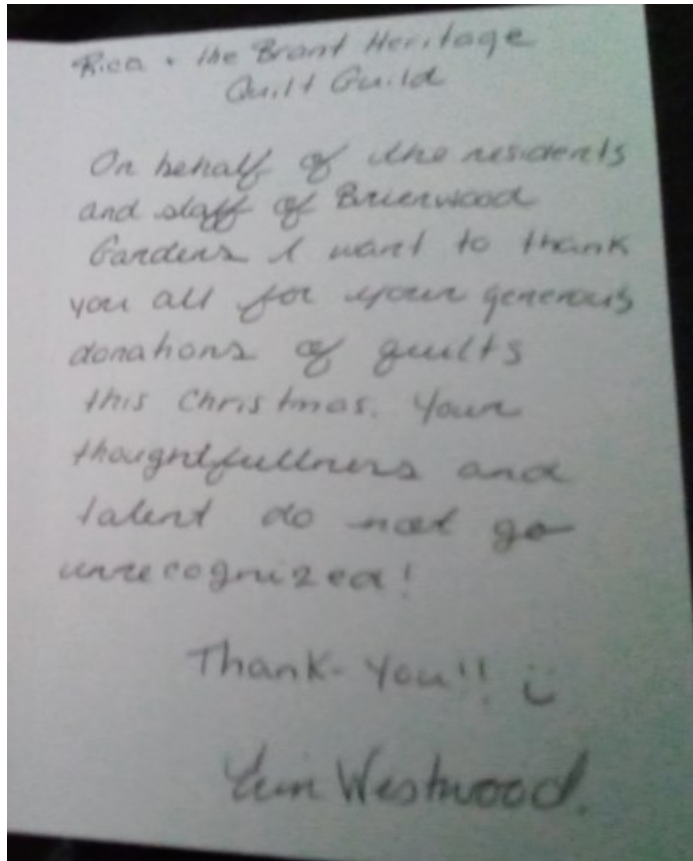 Rica + the Brant Heritage
Quilt Guild
On behalf of the residents
and staff of Brierwood
Gardens I want to thank
you all for your generous
donations of quilts
this Christmas. Your
thoughtfullness and
talent do not go
unrecognized!
Thank-You!! :)
Westwood.